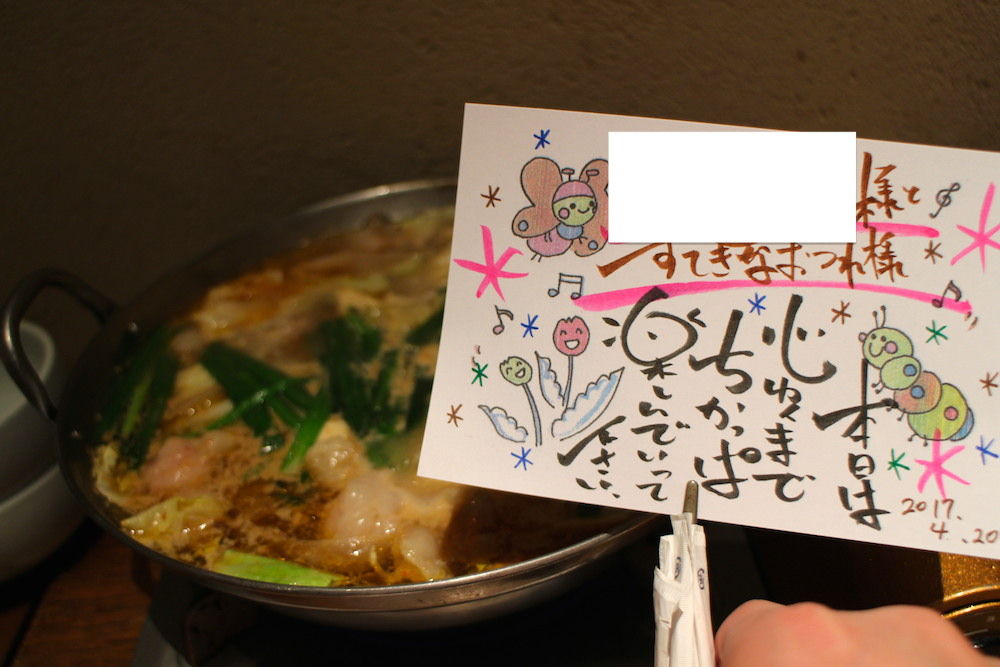 様と
すてきなおつれ様
本日は
心ゆくまで
ちかっぱ
楽しんでいって
下さい、
2017.
4.20